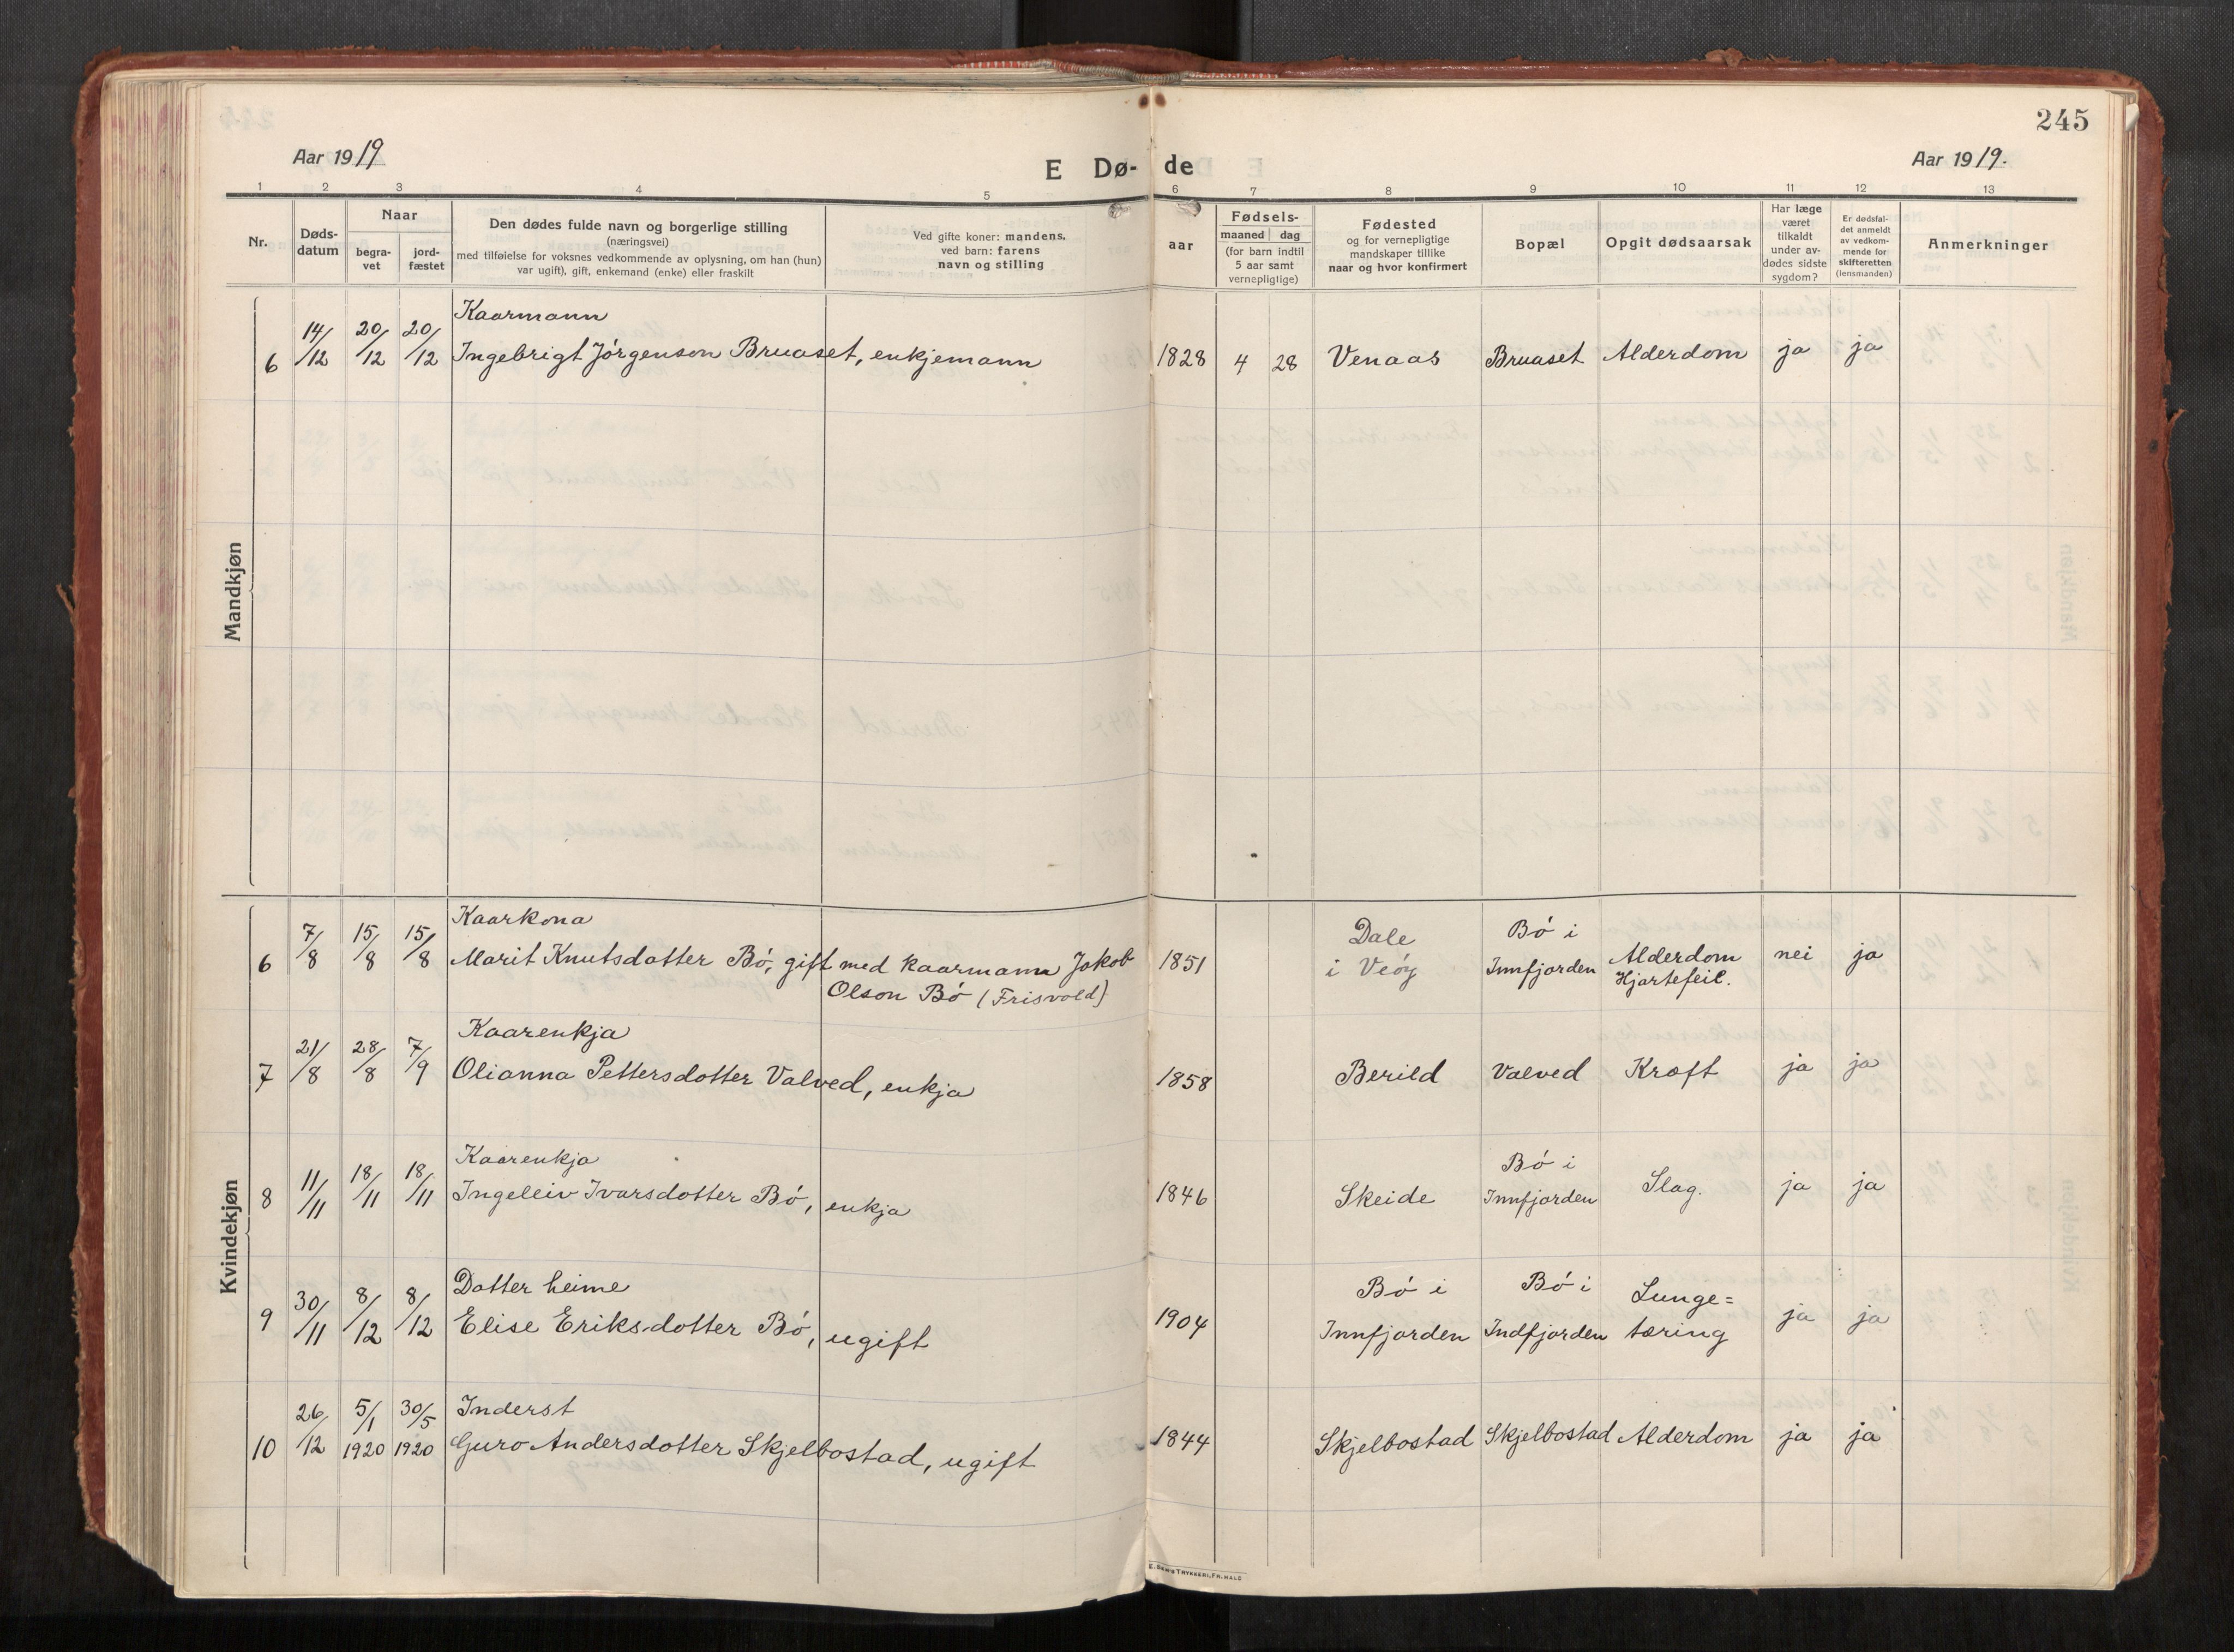 245
Aar 1919
E Dø- de
Aar 1919.
1 2 3 4 5 6 7 8 9 10 11 12 13
Nr.
Døds-
datum
Naar
begra-
vet
jord-
fæstet
Den dødes fulde navn og borgerlige stilling
(næringsvei)
med tilføielse for voksnes vedkommende av oplysning, om han (hun)
var ugift), gift, enkemand (enke) eller fraskilt
Ved gifte koner: mandens,
ved barn: farens
navn og stilling
Fødsels-
aar
maaned dag
(for barn indtil
5 aar samt
vernepligtige)
Fødested
og for vernepligtige
mandskaper tillike
naar og hvor konfirmert
Bopæl
Opgit dødsaarsak
Har læge
været
tilkaldt
under av-
dødes sidste
sygdom?
Er dødsfal-
det anmeldt
av vedkom-
mende for
skifteretten
(lensmanden)
Anmerkninger
Mandkjøn
Kaarmann
6 14/12 20/12 20/12 Ingebrigt Jörgenson Bruaset, enkjemann 1828 4 28 Venaas Bruaset Alderdom ja ja
Kvindekjøn
Kaarkona Dale Bó i
6 7/8 15/8 15/8 Marit Knutsdatter Bó, gift med kaarmann Jakob 1851 i Veóy Innfjorden Alderdom nei ja
Olson Bó (Frisvold) Hjartefeil.
Kaarenkja
7 21/8 28/8 7/9 Olianna Pettersdotter Valved, enkja 1858 Berild Valved Kræft ja ja
Kaarenkja Bó i
8 11/11 18/11 18/11 Ingeleiv Ivarsdotter Bó, enkja 1846 Skeide Innfjorden Slag. ja ja
Dotter heime Bó i Bó i Lunge=
9 30/11 8/12 8/12 Elise Eriksdotter Bó, ugift 1904 Innfjorden Indfjorden tæring ja ja
Inderst
10 26/12 5/1 1920 30/5 1920 Guro Andersdotter Skjelbostad, ugift 1844 Skjelbostad Skjelbostad Alderdom ja ja